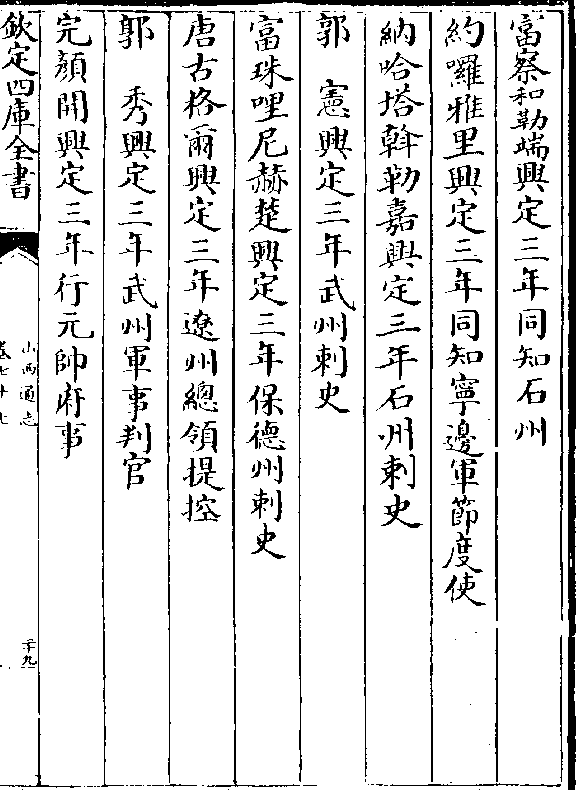 富察和勒端興定三年同知石州
約囉雅里興定三年同知寧邊軍節度使
納哈塔斡勒嘉興定三年石州刺史
郭　憲興定三年武州刺史
富珠哩尼赫楚興定三年保德州刺史
唐古格爾興定三年遼州總領提控
郭　秀興定三年武州軍事判官
完顏開興定三年行元帥府事
欽定四庫全書
山西通志
卷七十七
二十九